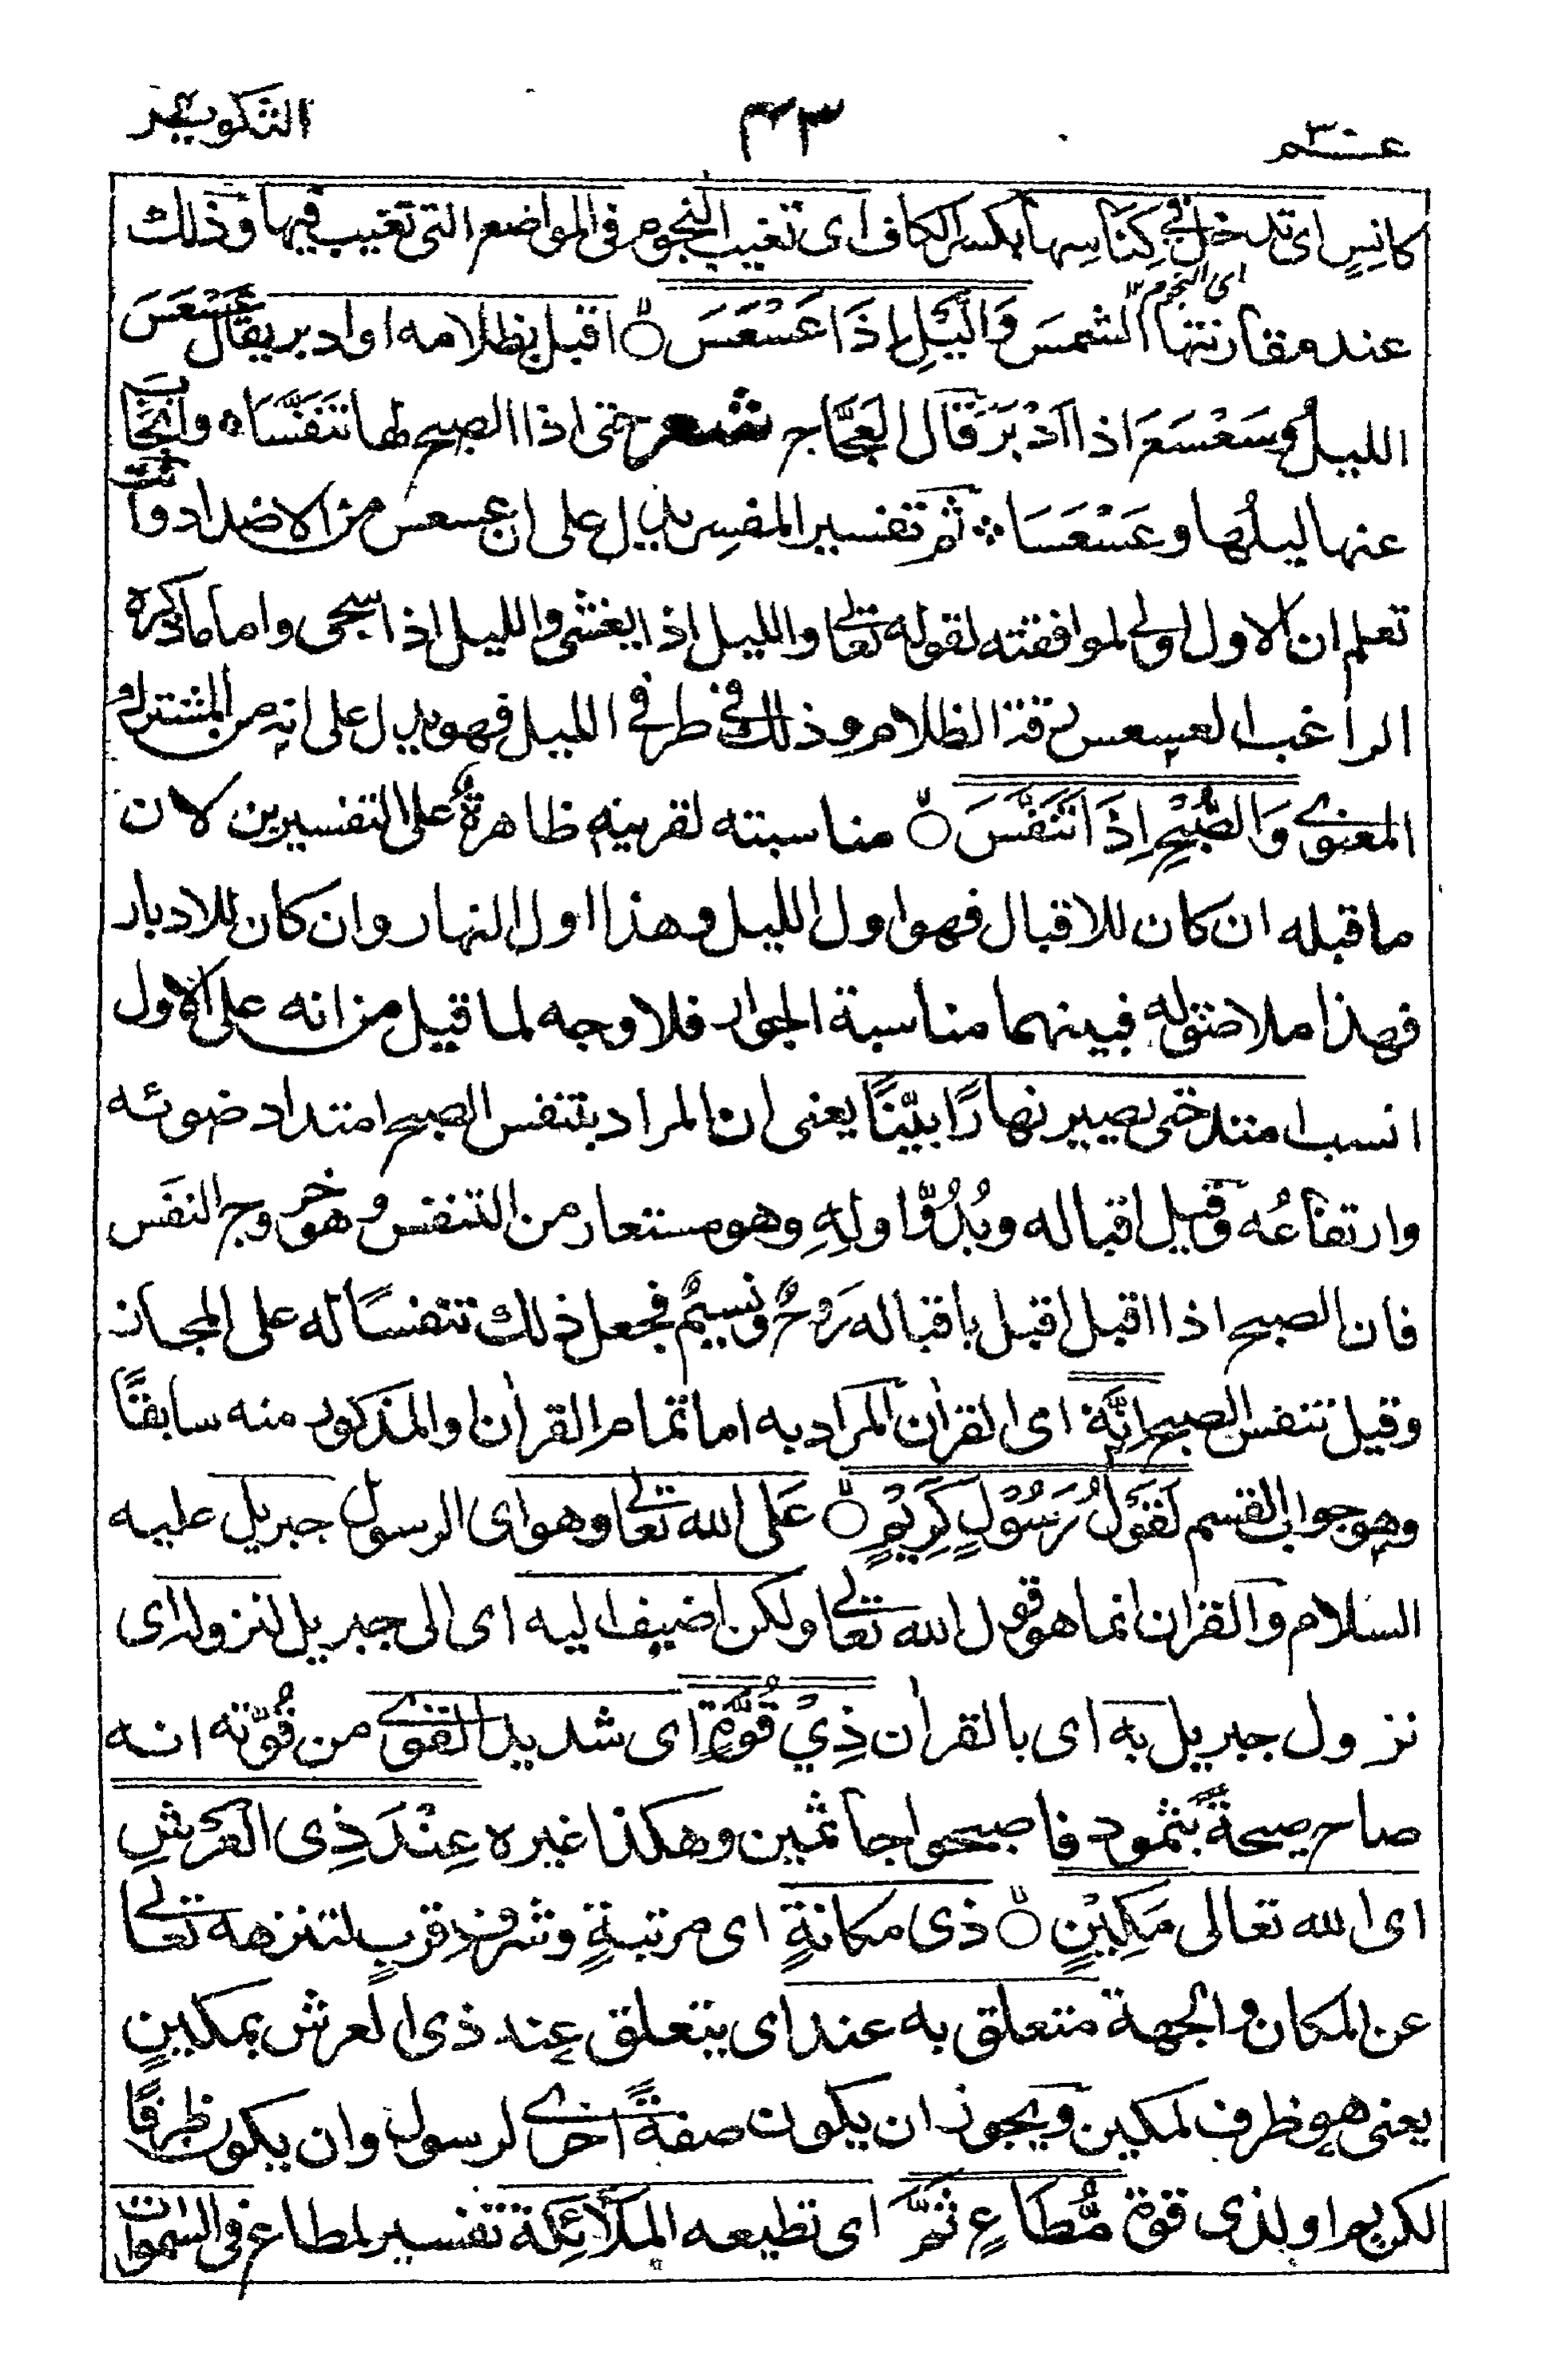 عم ٣٠ ٤٣ التكوير
كانِسٍ اى تدخل فى كِنَاسِها بكسر الكاف اى تغيب النجوم فى المواضع التى تغيب فيها وذلك
اى النجوم ١٢
عند مقارنتها الشمسَ وَالَّيْلِ اِذَا عَسْعَسَ ○ اقبل بظلامه او ادبر يقال عَسْعَسَ
الليلُ وسَعْسَعَ اذا اَدْبَرَ قال العَجَّاج شعر حتى اذا الصبح لها تَنَفَّسَا ٥ وانجَابَ
عنها ليلُها وعَسْعَسَا ۞ ثم تفسير المفسِر يدل على ان عسعس من الاضداد وانت
تعلم ان الاول اولى لموافقته لقوله تعالى والليل اذا يغشى والليل اذا سجى واما ما ذكره
الراغب العسعس رقة الظلام وذلك فى طرفى الليل فهو يدل على انه من المشترك
المعنوى وَالصُّبْحِ اِذَا تَنَفَّسَ ○ مناسبته لقرينه ظاهرةٌ على التفسيرين لان
ما قبله ان كان للاقبال فهو اول الليل وهذا اول النهار وان كان للادبار
فهذا ملاصق له فبينهما مناسبة الجوار فلا وجه لما قيل من انه على الاول
انسب امتد حتى يصير نهارًا بيّنًا يعنى ان المراد بتنفس الصبح امتداد ضوئه
وارتفاعُه وقيل اقباله وبُدُوُّ اولِهِ وهو مستعار من التنفس وهو خروج النفَس
فان الصبح اذا اقبل اقبل باقباله رَوْحٌ ونسيمٌ فجعل ذلك تنفسًا له على المجاز
وقيل تنفس الصبح اِنَّهٗ اى القرأن المراد به اما تمام القرأن والمذكور منه سابقًا
وهو جواب القسم لَقَوْلُ رَسُوْلٍ كَرِيْمٍ ○ عَلى الله تعالى وهو اى الرسول جبريل عليه
السلام والقرأن انما هو قول الله تعالى ولكن اضيف اليه اى الى جبريل لنزوله اى
نزول جبريل به اى بالقرأن ذِيْ قُوَّةٍ اى شديد القوى من قُوّته انه
صاح صيحةً بثمود فاصبحوا جاثمين وهكذا غيره عِنْدَ ذِى الْعَرْشِ
اى الله تعالى مَكِيْنٍ ○ ذى مكانةٍ اى مرتبةٍ وشرفٍ وقربٍ لتنزهه تعالى
عن المكان والجهة متعلق به عند اى يتعلق عند ذى العرش بمكينٍ
يعنى هو ظرف لمكين ويجوز ان يكون صفةً اخرى لرسول وان يكون ظرفًا
لكريم او لذى قوة مُّطَاعٍ ثَمَّ اى تطيعه الملائِكة تفسير لمطاع فى السموات